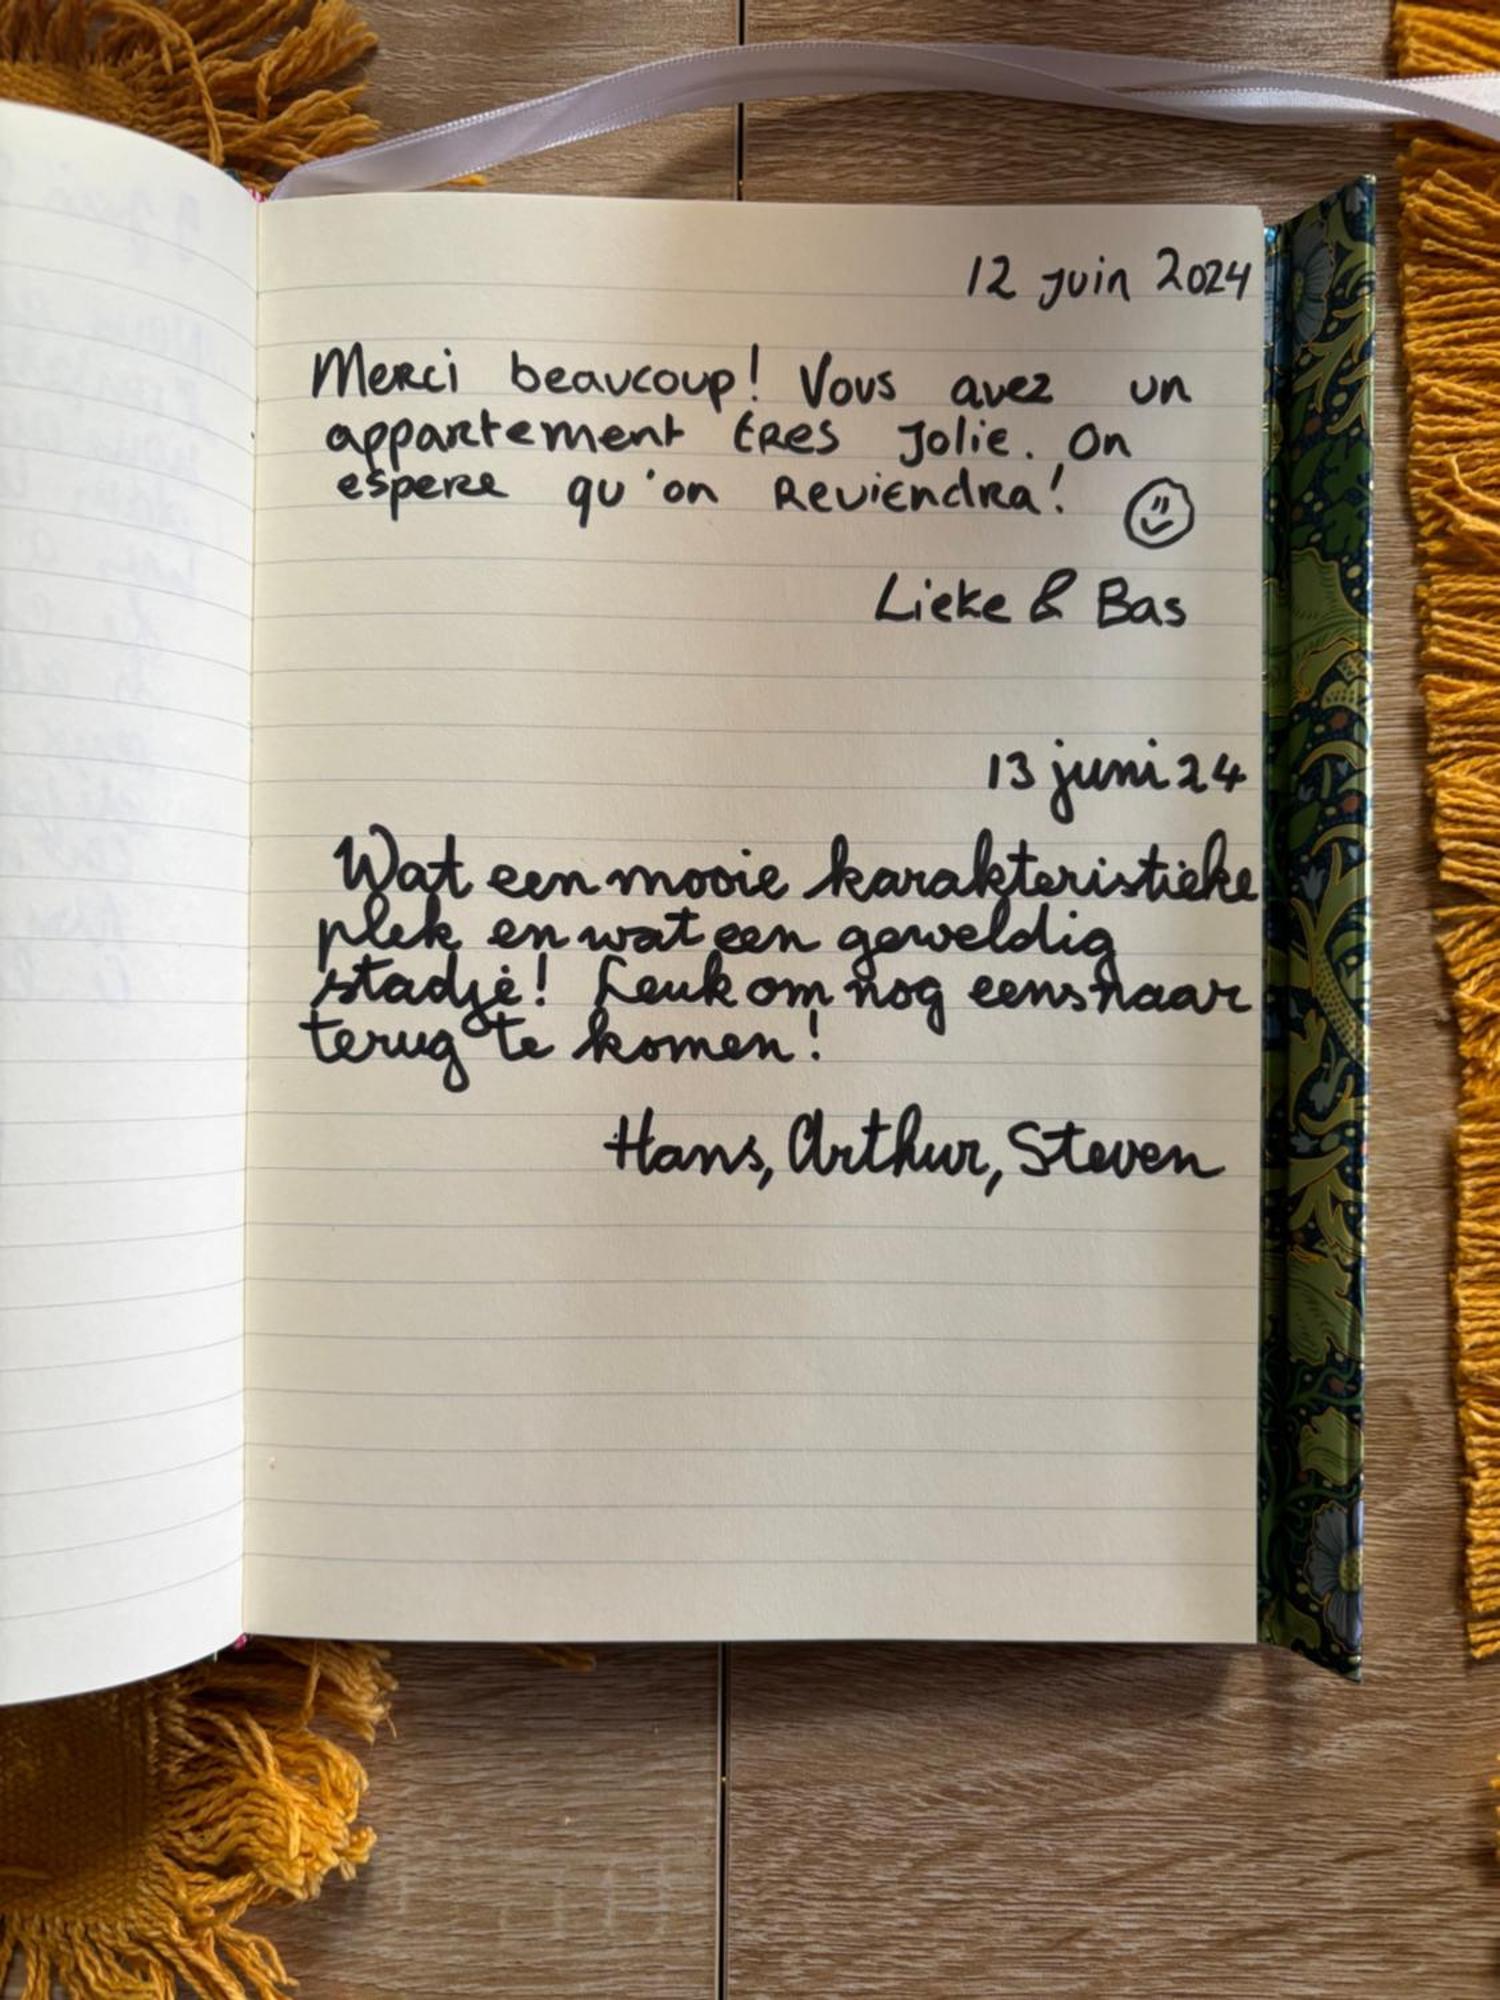 12 juin 2024
Merci beaucoup! Vous avez un
appartement tres jolie. On
espere qu'on reviendra!
Lieke & Bas
13 juni 24
Wat een mooie karakteristieke
plek en wat een geweldig
stadje! Leuk om nog eens naar
terug te komen!
Hans, Arthur, Steven